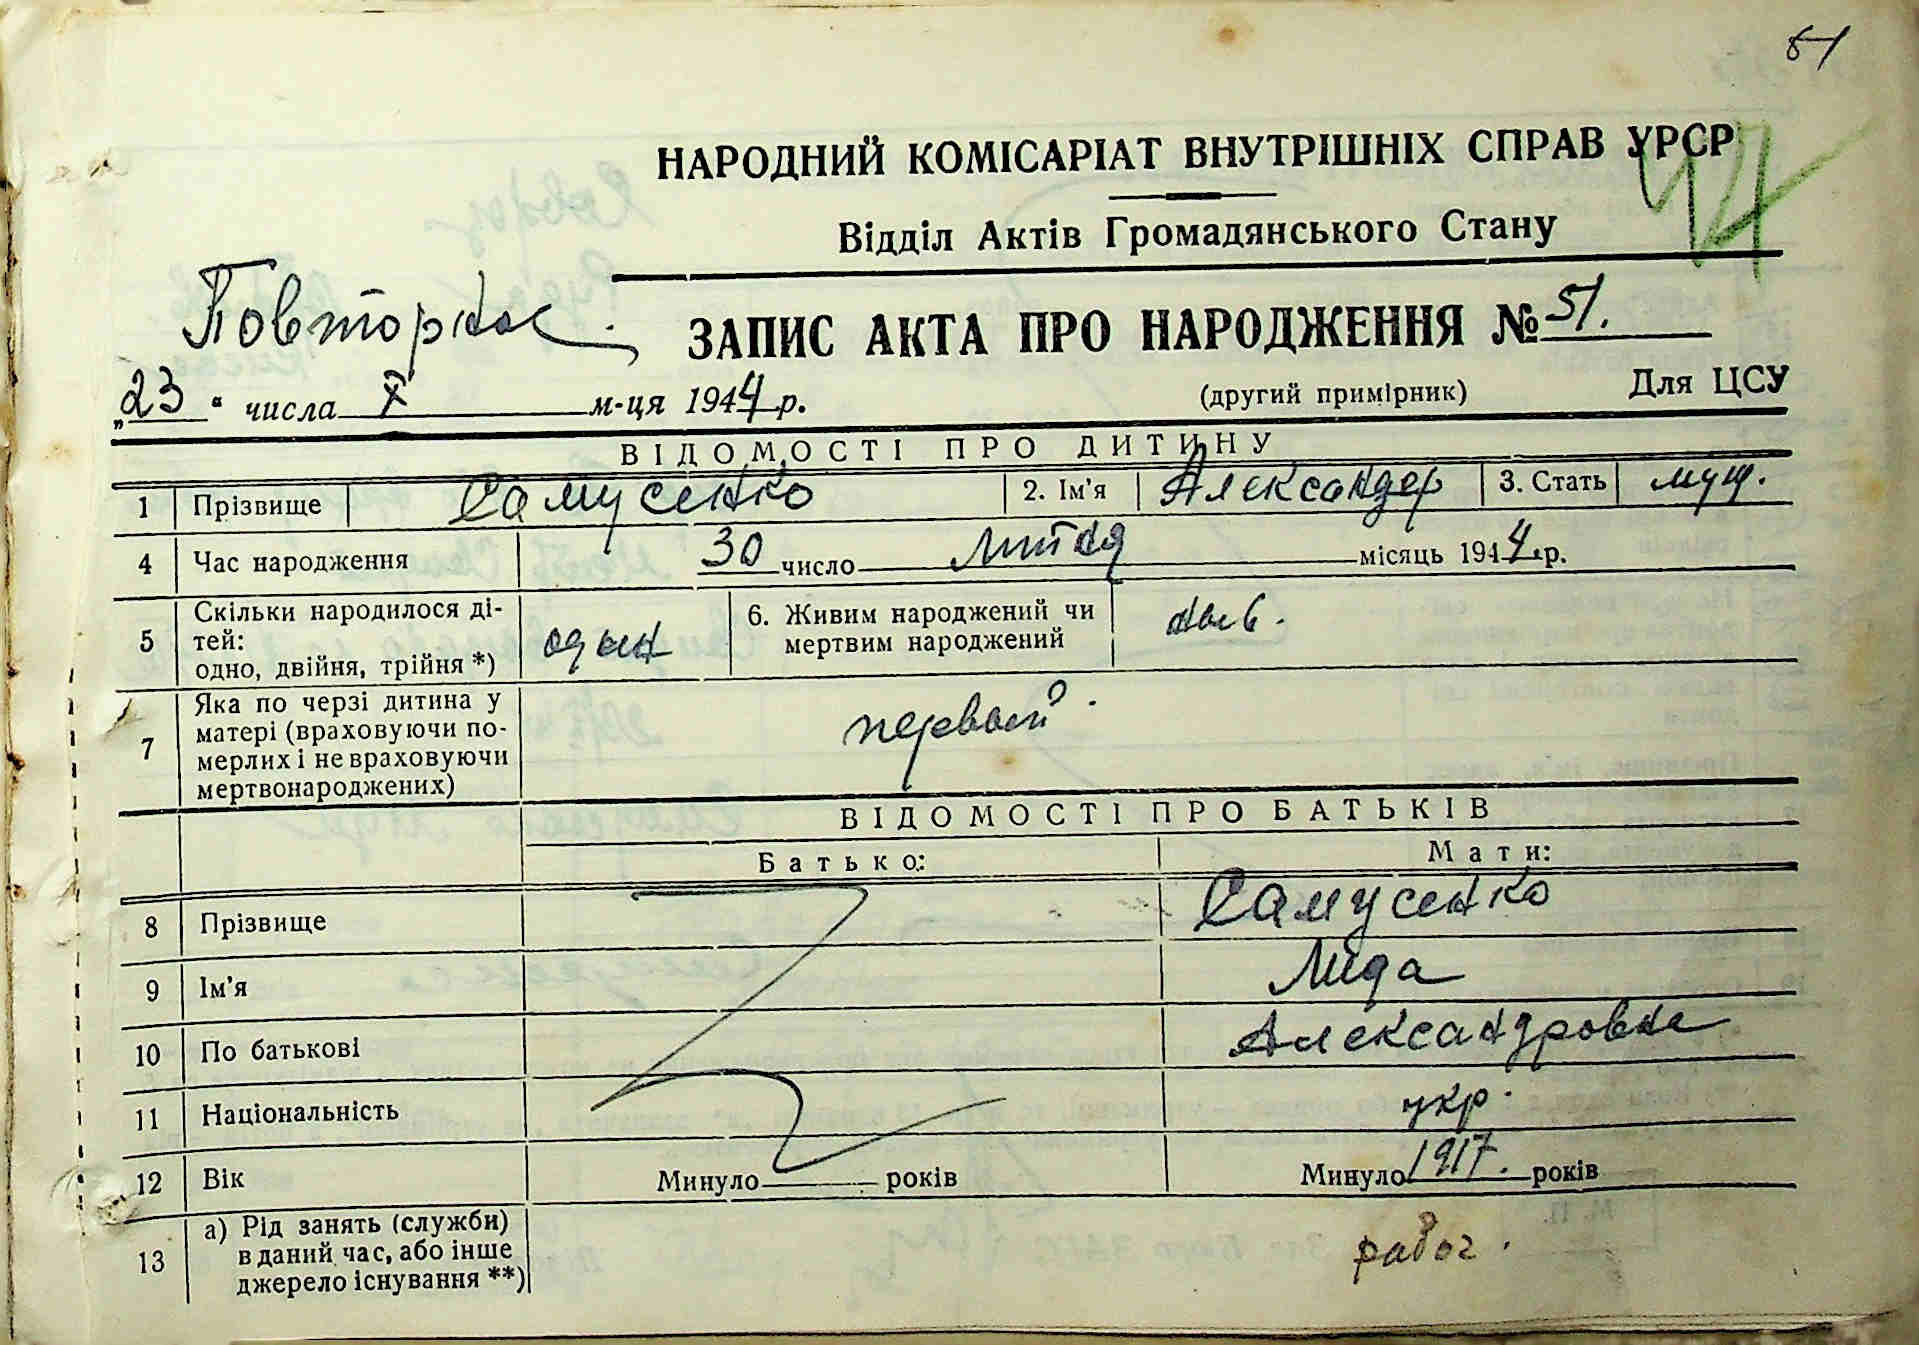 51
НАРОДНИЙ КОМІСАРІАТ ВНУТРІШНІХ СПРАВ УРСР
Відділ Актів Громадянського Стану
ЗАПИС АКТА ПРО НАРОДЖЕННЯ № 51.
„23" числа X м-ця 1944 р. (другий примірник) Для ЦСУ
ВІДОМОСТІ ПРО ДИТИНУ
1 Прізвище Самусенко 2. Ім'я Александер 3. Стать муж.
4 Час народження 30 число місяць 1944 р.
5 Скільки народилося ді-
тей:
одно, двійня, трійня *) один 6. Живим народжений чи
мертвим народжений
7 Яка по черзі дитина у
матері (враховуючи по-
мерлих і не враховуючи
мертвонароджених) первый
ВІДОМОСТІ ПРО БАТЬКІВ
Батько: Мати:
8 Прізвище Самусенко
9 Ім'я Лида
10 По батькові Александровна
11 Національність укр.
12 Вік Минуло років Минуло 1917. років
13 а) Рід занять (служби)
в даний час, або інше
джерело існування **) рабоч.